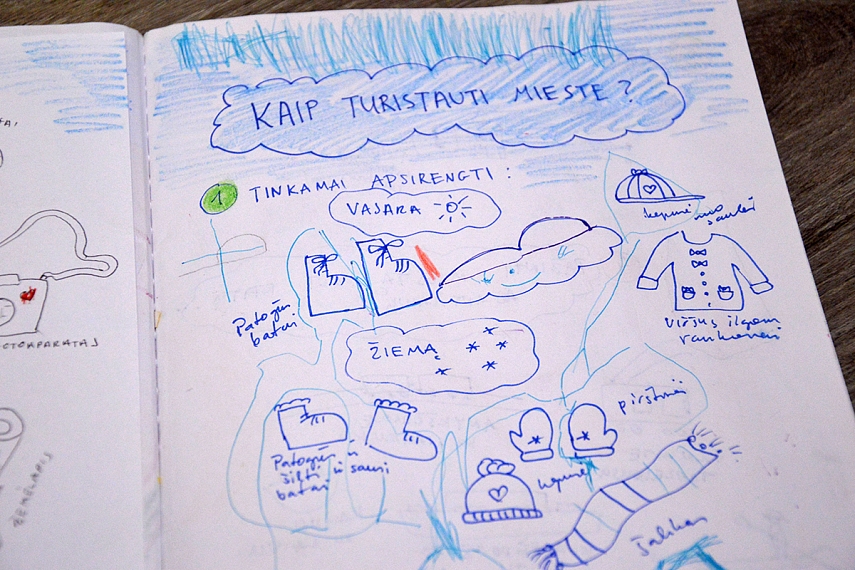 KAIP TURISTAUTI MIESTE?
1 TINKAMAI APSIRENGTI:
VASARA
kepurė nuo saulės
Patogūs
batai
viršus ilgom
rankovėm
ŽIEMĄ
pirštinės
Patogūs ir
šilti ir sausi
batai
kepurė
šalikas
OTOAPARATAS
ŽEMĖLAPIS